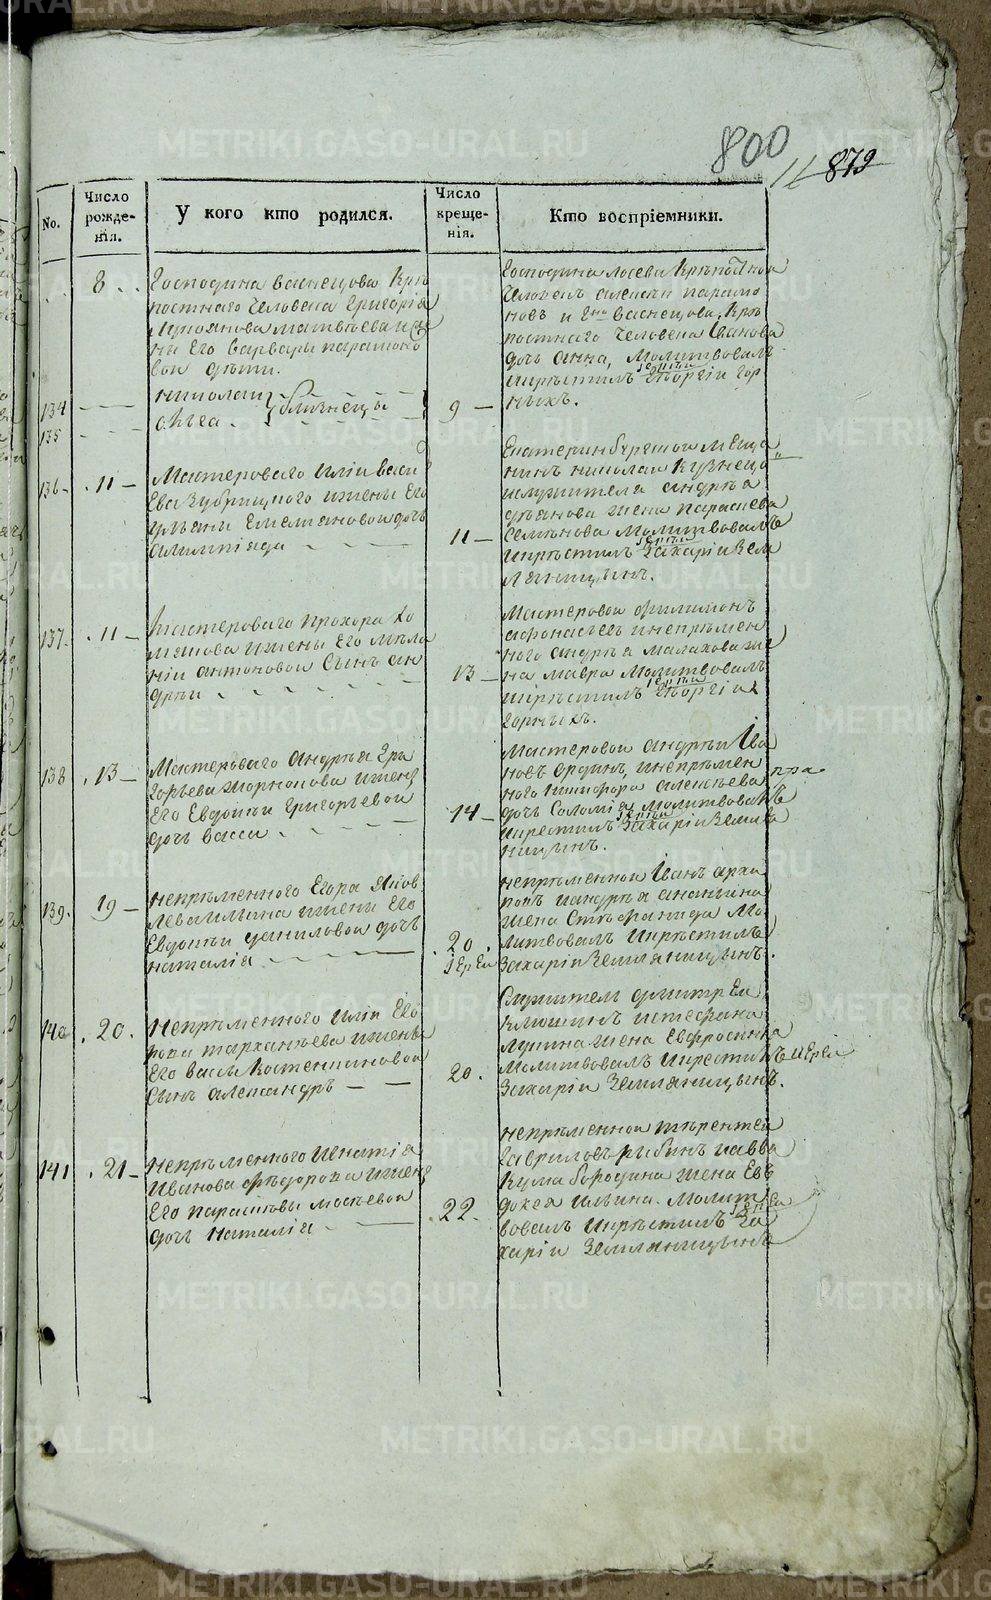 800
879
No.
Число рожде-нія.
У кого кто родился.
Число креще-нія.
Кто воспріемники.
8
Господина Васнецова Крѣ
постнаго Человека Григорія
Матвѣева и же
ни Его Варвары Парамоно
вои дѣти.
134
Николаи
135
Ольга
близнецы
9
Господина Лосева Крѣпостнои
Человекъ Алексѣи Парамо
новъ и Гна Васнецова Крѣ
постнаго Человека Иванова
дочь Анна, Молитвовалъ
икрѣстилъ Іереи Георгіи Гор
ныхъ.
136
11
Мастероваго Иліи Васи
ева Зубрицкого ижены Его
Ульяни Емеліяновои дочь
Алимпіяда
11
Екатеринбургскои Меща
нинъ Николаи Кузнецо
ислужителя Андрѣа
жена Параскева
Семенова Молитвовалъ
икрѣстилъ Іереи Захаріи Зем
ляницынъ.
137.
11
Мастероваго Прохора Хо
мякова ижены Его Мела
ніи Антоновои Сынъ Ан
дрѣи
13
Мастеровои Филимонъ
Афонасьевъ инепремен
ного Андрѣя Малахова же
на Мавра Молитвовалъ
икрѣстилъ Іереи Георгіи
Горныхъ.
138
13
Мастероваго Андрѣя Гри
горьева ижены
Его Евдокѣи Григорьевои
дочь Васса
14
Мастеровои Андрѣи Ива
новъ инепремен
ного Никифора Алексѣева
дочь Соломія Молитвовалъ
икрестилъ Іереи Захаріи Земля
ницынъ.
139.
19
Непремѣнного Егора Яков
лева Илина ижени Его
Евдокѣи Даниловои дочь
Наталія
20.
Іереи
Непремѣннои Иванъ Архи
повъ иАндрѣя Ананьина
жена Стефанида Мо
литвовалъ икрѣстилъ
Захаріи Земляницынъ.
140
20.
Непремѣнного Иліи Его
рова Тарханѣева ижены
Его Васы Костентиновои
Сынъ Александръ
20.
Служитель Дмитреи
Клюкинъ иСтефана
Лунина жена Евфросинья
Молитвовалъ икрестилъ иЕреи
Захаріи Земляницынъ.
141
21
Непремѣнного Игнатія
Иванова Фѣдорова ижены
Его Парасковьи Мосѣевои
дочь Наталія
22.
Непремѣннои Терентеи
Гавриловъ Рыбинъ иАвва
кума Бородина жена Ев
докея Ильина. Молит
вовалъ икрѣстилъ Іереи За
харіи Земляницынъ
METRIKI.GASO-URAL.RU